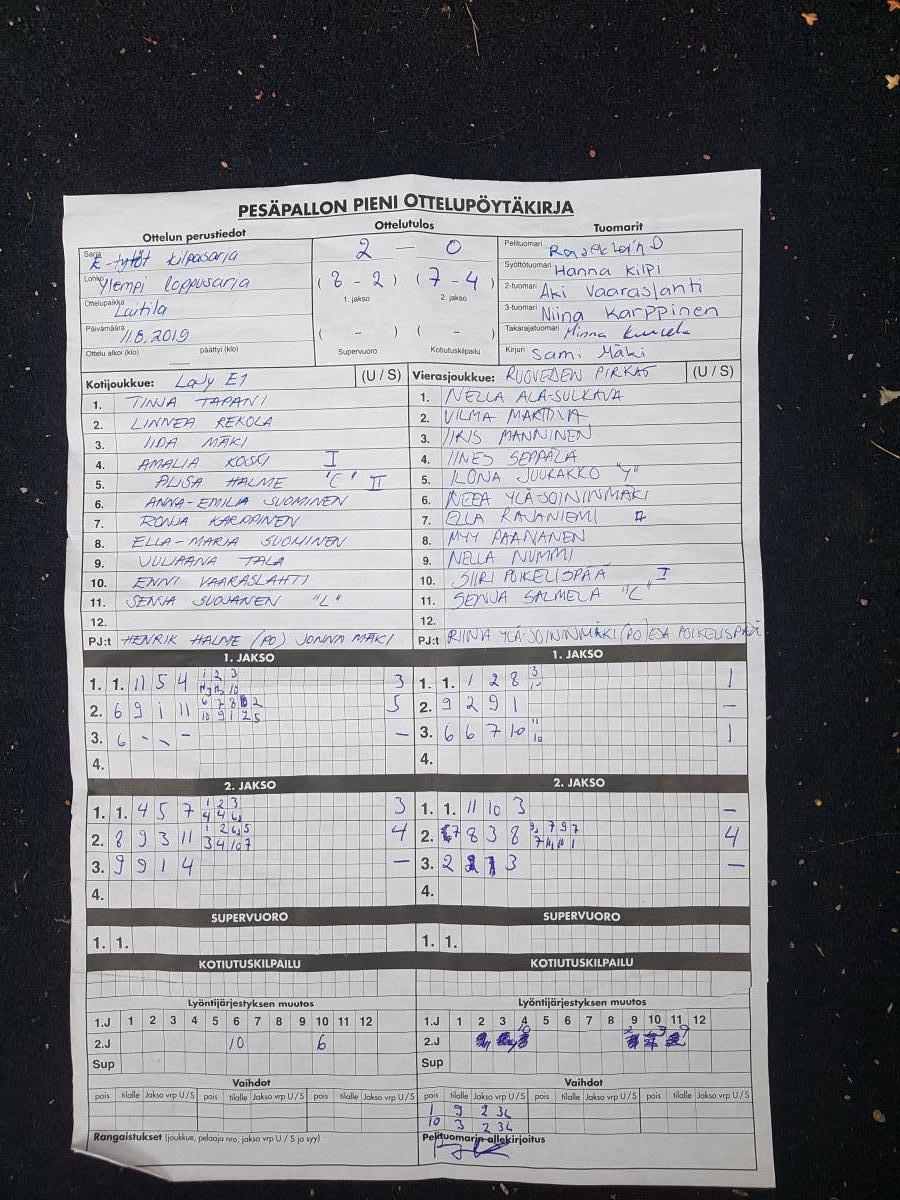 PESÄPALLON PIENI OTTELUPÖYTÄKIRJA
Ottelun perustiedot
Ottelutulos
Tuomarit
Sarja E-tytöt kilpasarja
Lohko Ylempi loppusarja
Ottelupaikka Laitila
Päivämäärä 11.8.2019
Ottelu alkoi (klo) päättyi (klo)
2 – 0
(8 - 2) (7 - 4)
1. jakso 2. jakso
( - ) ( - )
Supervuoro Kotiutuskilpailu
Pelituomari
Syöttötuomari Hanna Kilpi
2-tuomari Aki Vaaraslahti
3-tuomari Niina Karppinen
Takarajatuomari Minna
Kirjuri Sami Mäki
Kotijoukkue: LaJy E1 (U / S)
1. TINJA TAPANI
2. LINNEA REKOLA
3. IIDA MÄKI
4. AMALIA KOSKI I
5. ALISA HALME "C" II
6. ANNA-EMILIA SUOMINEN
7. RONJA KARPPINEN
8. ELLA-MARIA SUOMINEN
9. JULIAANA TALA
10. ENNI VAARASLAHTI
11. SENJA SUOJANEN "L"
12.
PJ:t HENRIK HALME (PO) JONNA MÄKI
Vierasjoukkue: RUOVEDEN PIRKAT (U / S)
1. NELLA ALA-SULKAVA
2. VILMA
3. IIRIS MANNINEN
4. IINES SEPPÄLÄ
5. ILONA JUURAKKO "Y"
6. NEEA YLÄ-JOININMÄKI
7. ELLA RAJANIEMI
8. MYY PAANANEN
9. NELLA NUMMI
10. SIIRI POIKELISPÄÄ I
11. SENJA SALMELA "C"
12.
PJ:t RIINA YLÄ-JOININMÄKI (PO) ESA POIKELISPÄÄ
1. JAKSO
1. 1. 11 5 4 1 2 3 3
2. 6 9 1 11 5
3. 6 - - - –
4.
1. JAKSO
1. 1. 1 2 8 3 10 1
2. 9 2 9 1 –
3. 6 6 7 10 11 10 1
4.
2. JAKSO
1. 1. 4 5 7 1 2 3 3
2. 8 9 3 11 4
3. 9 9 1 4 –
4.
2. JAKSO
1. 1. 11 10 3 –
2. 7 8 3 8 4
3. 2 3 –
4.
SUPERVUORO
1. 1.
SUPERVUORO
1. 1.
KOTIUTUSKILPAILU
KOTIUTUSKILPAILU
Lyöntijärjestyksen muutos
1.J 1 2 3 4 5 6 7 8 9 10 11 12
2.J 10 6
Sup
Lyöntijärjestyksen muutos
1.J 1 2 3 4 5 6 7 8 9 10 11 12
2.J
Sup
Vaihdot
pois tilalle Jakso vrp U / S pois tilalle Jakso vrp U / S pois tilalle Jakso vrp U / S
Vaihdot
pois tilalle Jakso vrp U / S pois tilalle Jakso vrp U / S pois tilalle Jakso vrp U / S
1 9 2 3L
10 3 2 3L
Rangaistukset (joukkue, pelaaja nro, jakso vrp U / S ja syy)
Pelituomarin allekirjoitus